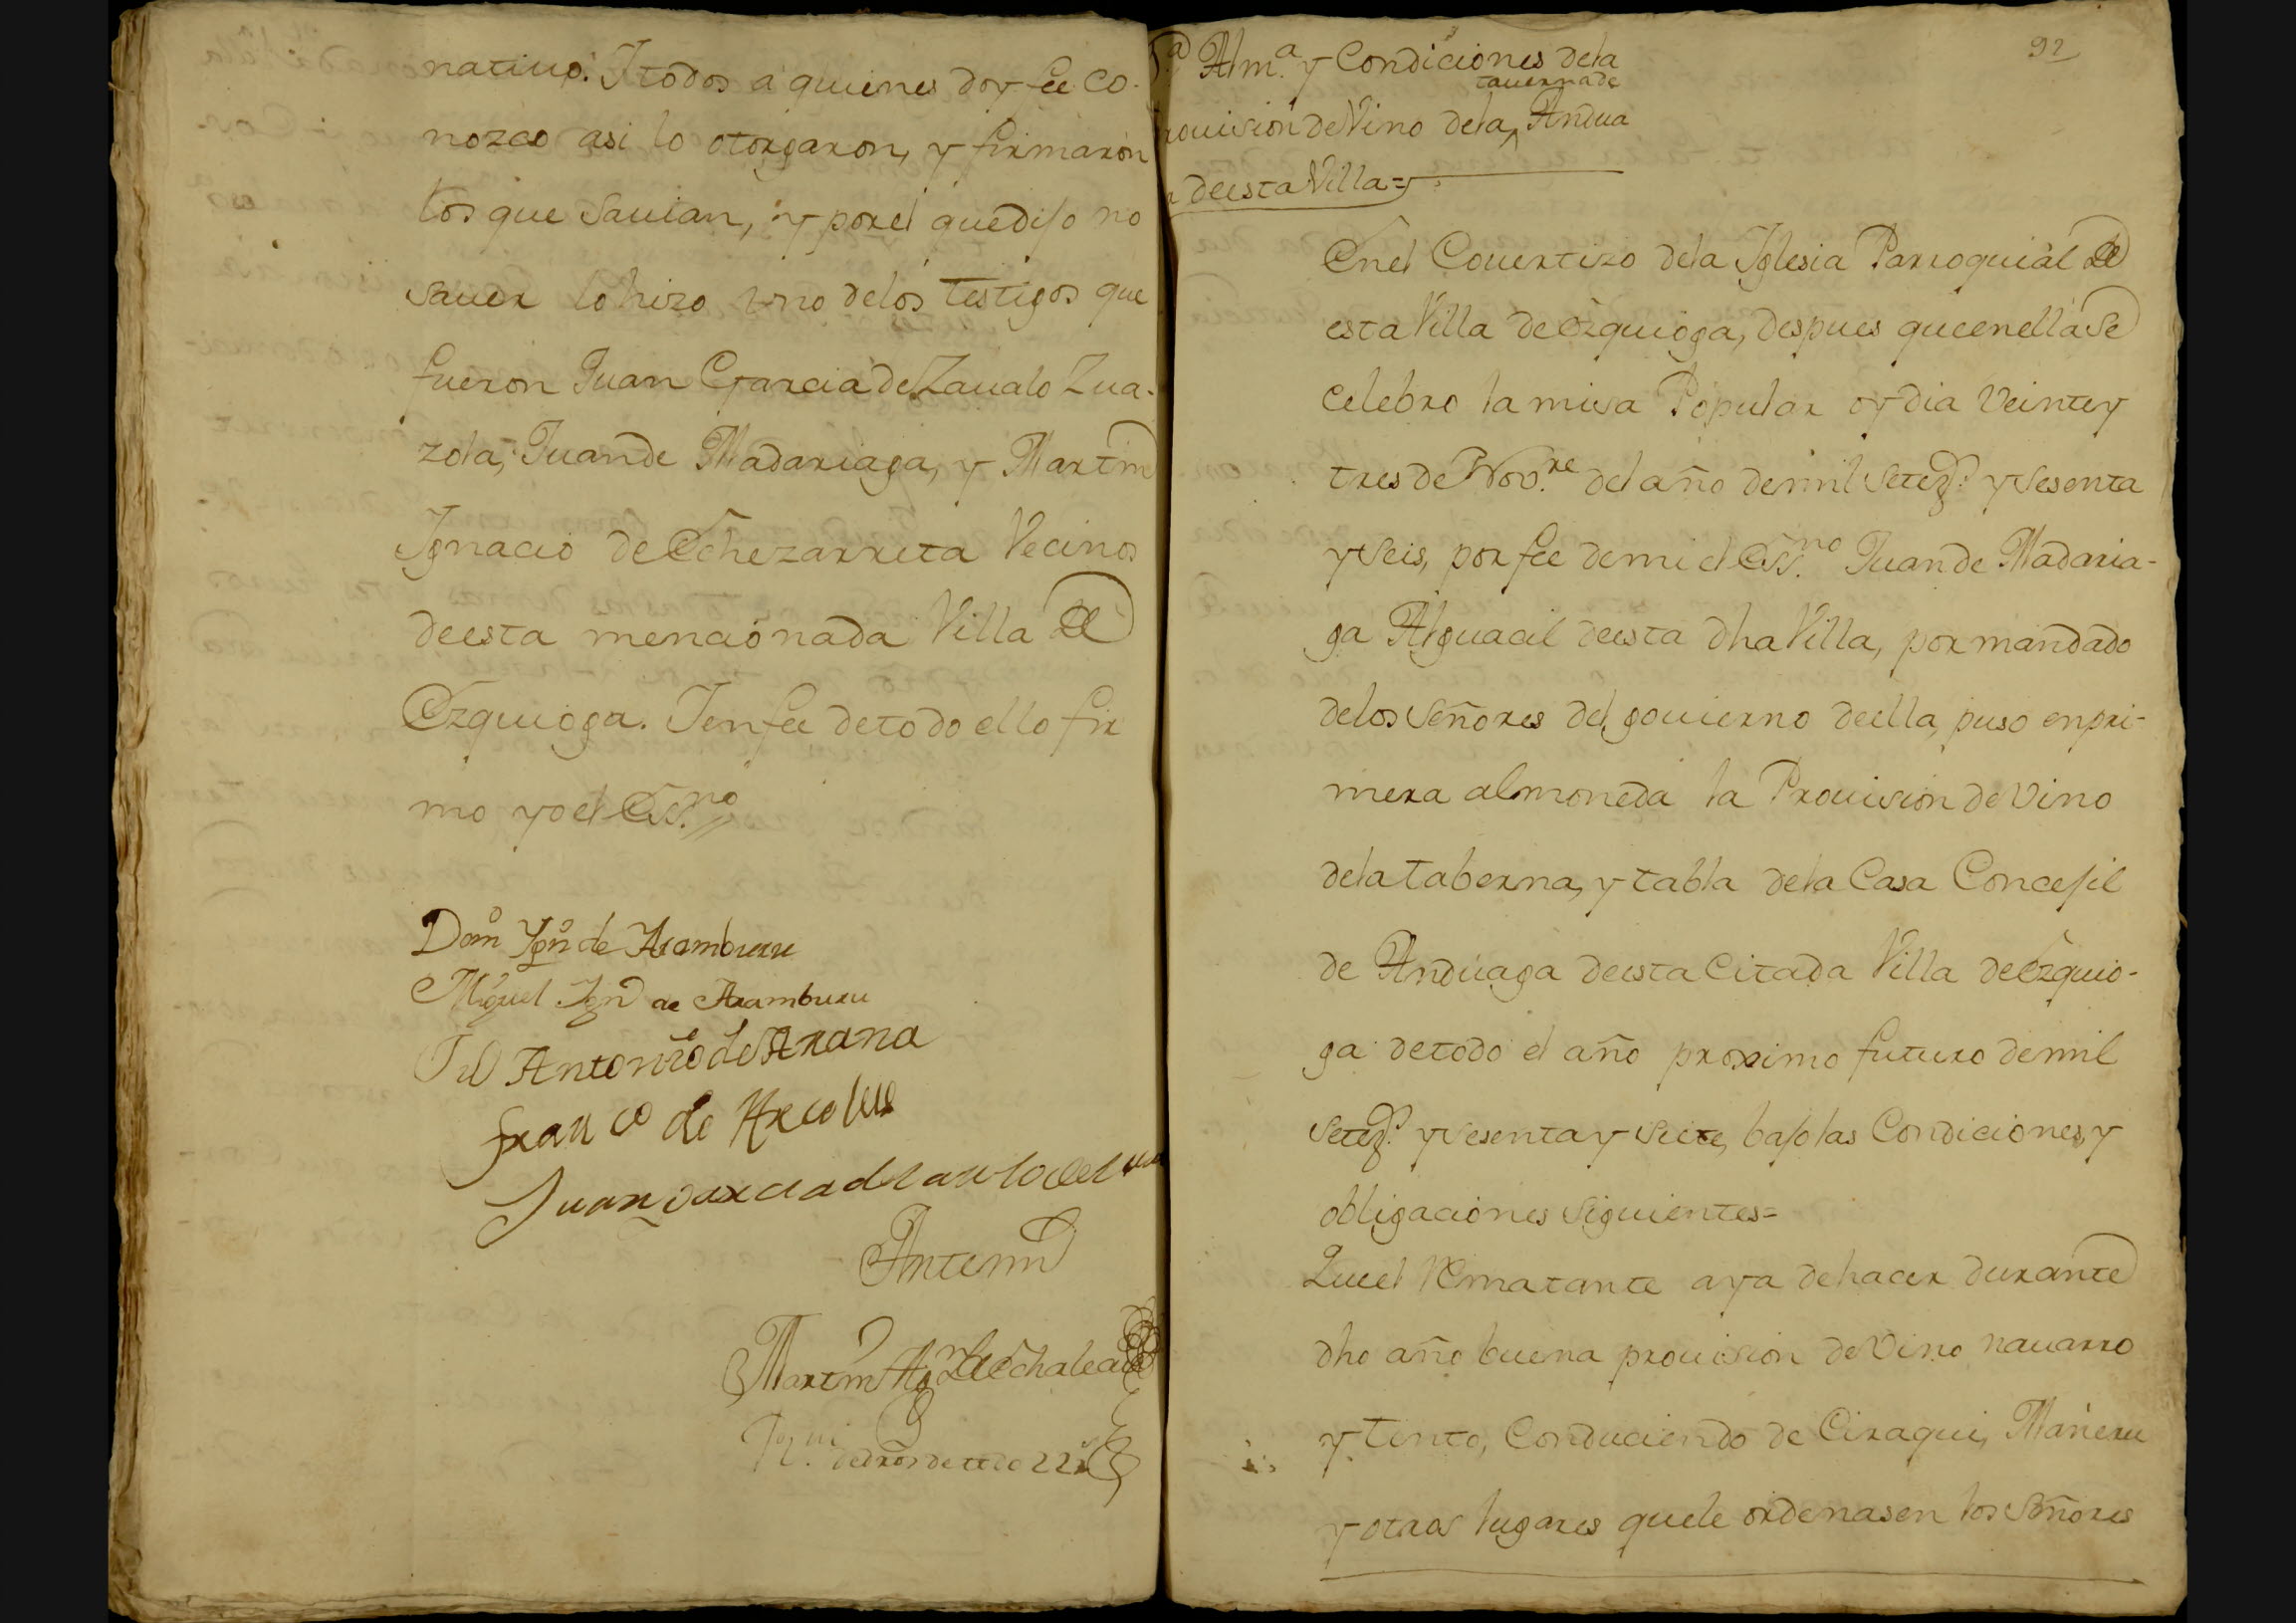 nativo. Y todos a quienes doy fee co-
nozco asi lo otorgaron, y firmaron
los que savian, y por el que dijo no
saver lo hizo uno de los testigos que
fueron Juan Garcia de Zavalo Zua-
zola, Juan de Madariaga, y Martin
Ignacio de Echezarreta Vecinos
de esta mencionada Villa de
Ezquioga. Y en fee de todo ello fir
mo yo el Essno
Domo Igno de Aramburu
Miguel Ign de Aramburu
Antonio de Arana
Franco de
Juan Garcia de
Ante mi
Martin
92
Alma y Condiciones de la
rovision de Vino de la taverna de Andua
de esta Villa=
En el Covertizo de la Iglesia Parroquial de
esta Villa de Ezquioga, despues que en ella se
celebro la misa Popular oy dia Veinte y
tres de Novre del año de mil setezs y sesenta
y seis, por fee de mi el Essno Juan de Madaria-
ga Alguacil de esta dha Villa, por mandado
de los Señores del govierno de ella, puso en pri-
mera almoneda la Provision de Vino
de la taberna, y tabla de la Casa Concejil
de Anduaga de esta Citada Villa de Ezquio-
ga de todo el año proximo futuro de mil
setezs y sesenta y siete, bajo las Condiciones, y
obligaciones siguientes=
Que el Rematante aya de hacer durante
dho año buena provision de Vino navarro
y tinto, Conduciendo de Ciraqui, Mañeru
y otros lugares que le ordenasen los Señores